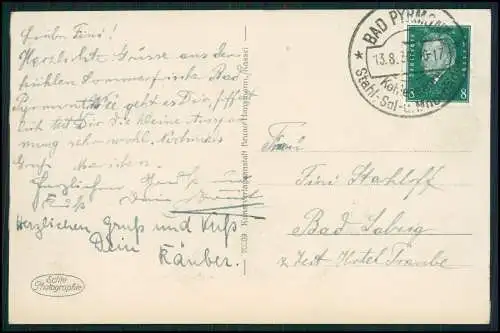 Liebe Fini!
Herzlichste Grüsse aus der
kühlen Sommerfrische Bad
Pyrmont. Wie geht es Dir, hoffent-
lich tut Dir die kleine Ausspan-
nung sehr wohl. Nochmals
Gruß
Herzlichen Gruß und
Kuß Dein
Herzlichen Gruß und Kuß
Dein
Räuber.
Echte
Photographie
Kunstverlagsanstalt Bruno Hansmann, Cassel
BAD PYRMONT
13.8.
Stahl-, Sol- u. Moor
8 8
Frau
Fini
Bad
z. Zeit Hotel Traube